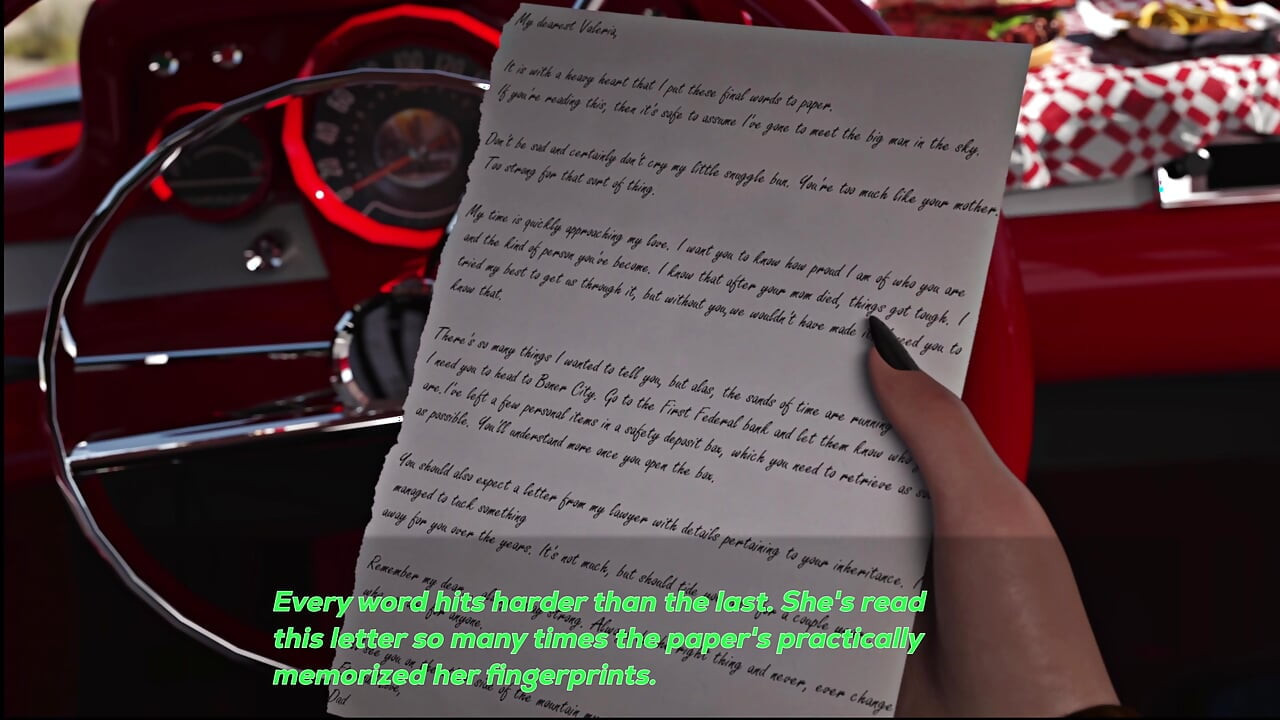 My dearest Valeria,
It is with a heavy heart that I put these final words to paper.
If you're reading this, then it's safe to assume I've gone to meet the big man in the sky.
Don't be sad and certainly don't cry my little snuggle bun. You're too much like your mother.
Too strong for that sort of thing.
My time is quickly approaching my love. I want you to know how proud I am of who you are
and the kind of person you've become. I know that after your mom died, things got tough. I
tried my best to get us through it, but without you,we wouldn't have made need you to
know that.
There's so many things I wanted to tell you, but alas, the sands of time are running
I need you to head to Boner City. Go to the First Federal bank and let them know who
are.I've left a few personal items in a safety deposit box, which you need to retrieve as
as possible. You'll understand more once you open the box.
You should also expect a letter from my lawyer with details pertaining to your inheritance. I
managed to tuck something
away for you over the years. It's not much, but should tide for a couple
Remember my dear, strong. right thing and never, ever change
for anyone.
see you on side of the mountain
Love,
Dad
Every word hits harder than the last. She's read
this letter so many times the paper's practically
memorized her fingerprints.
100 120